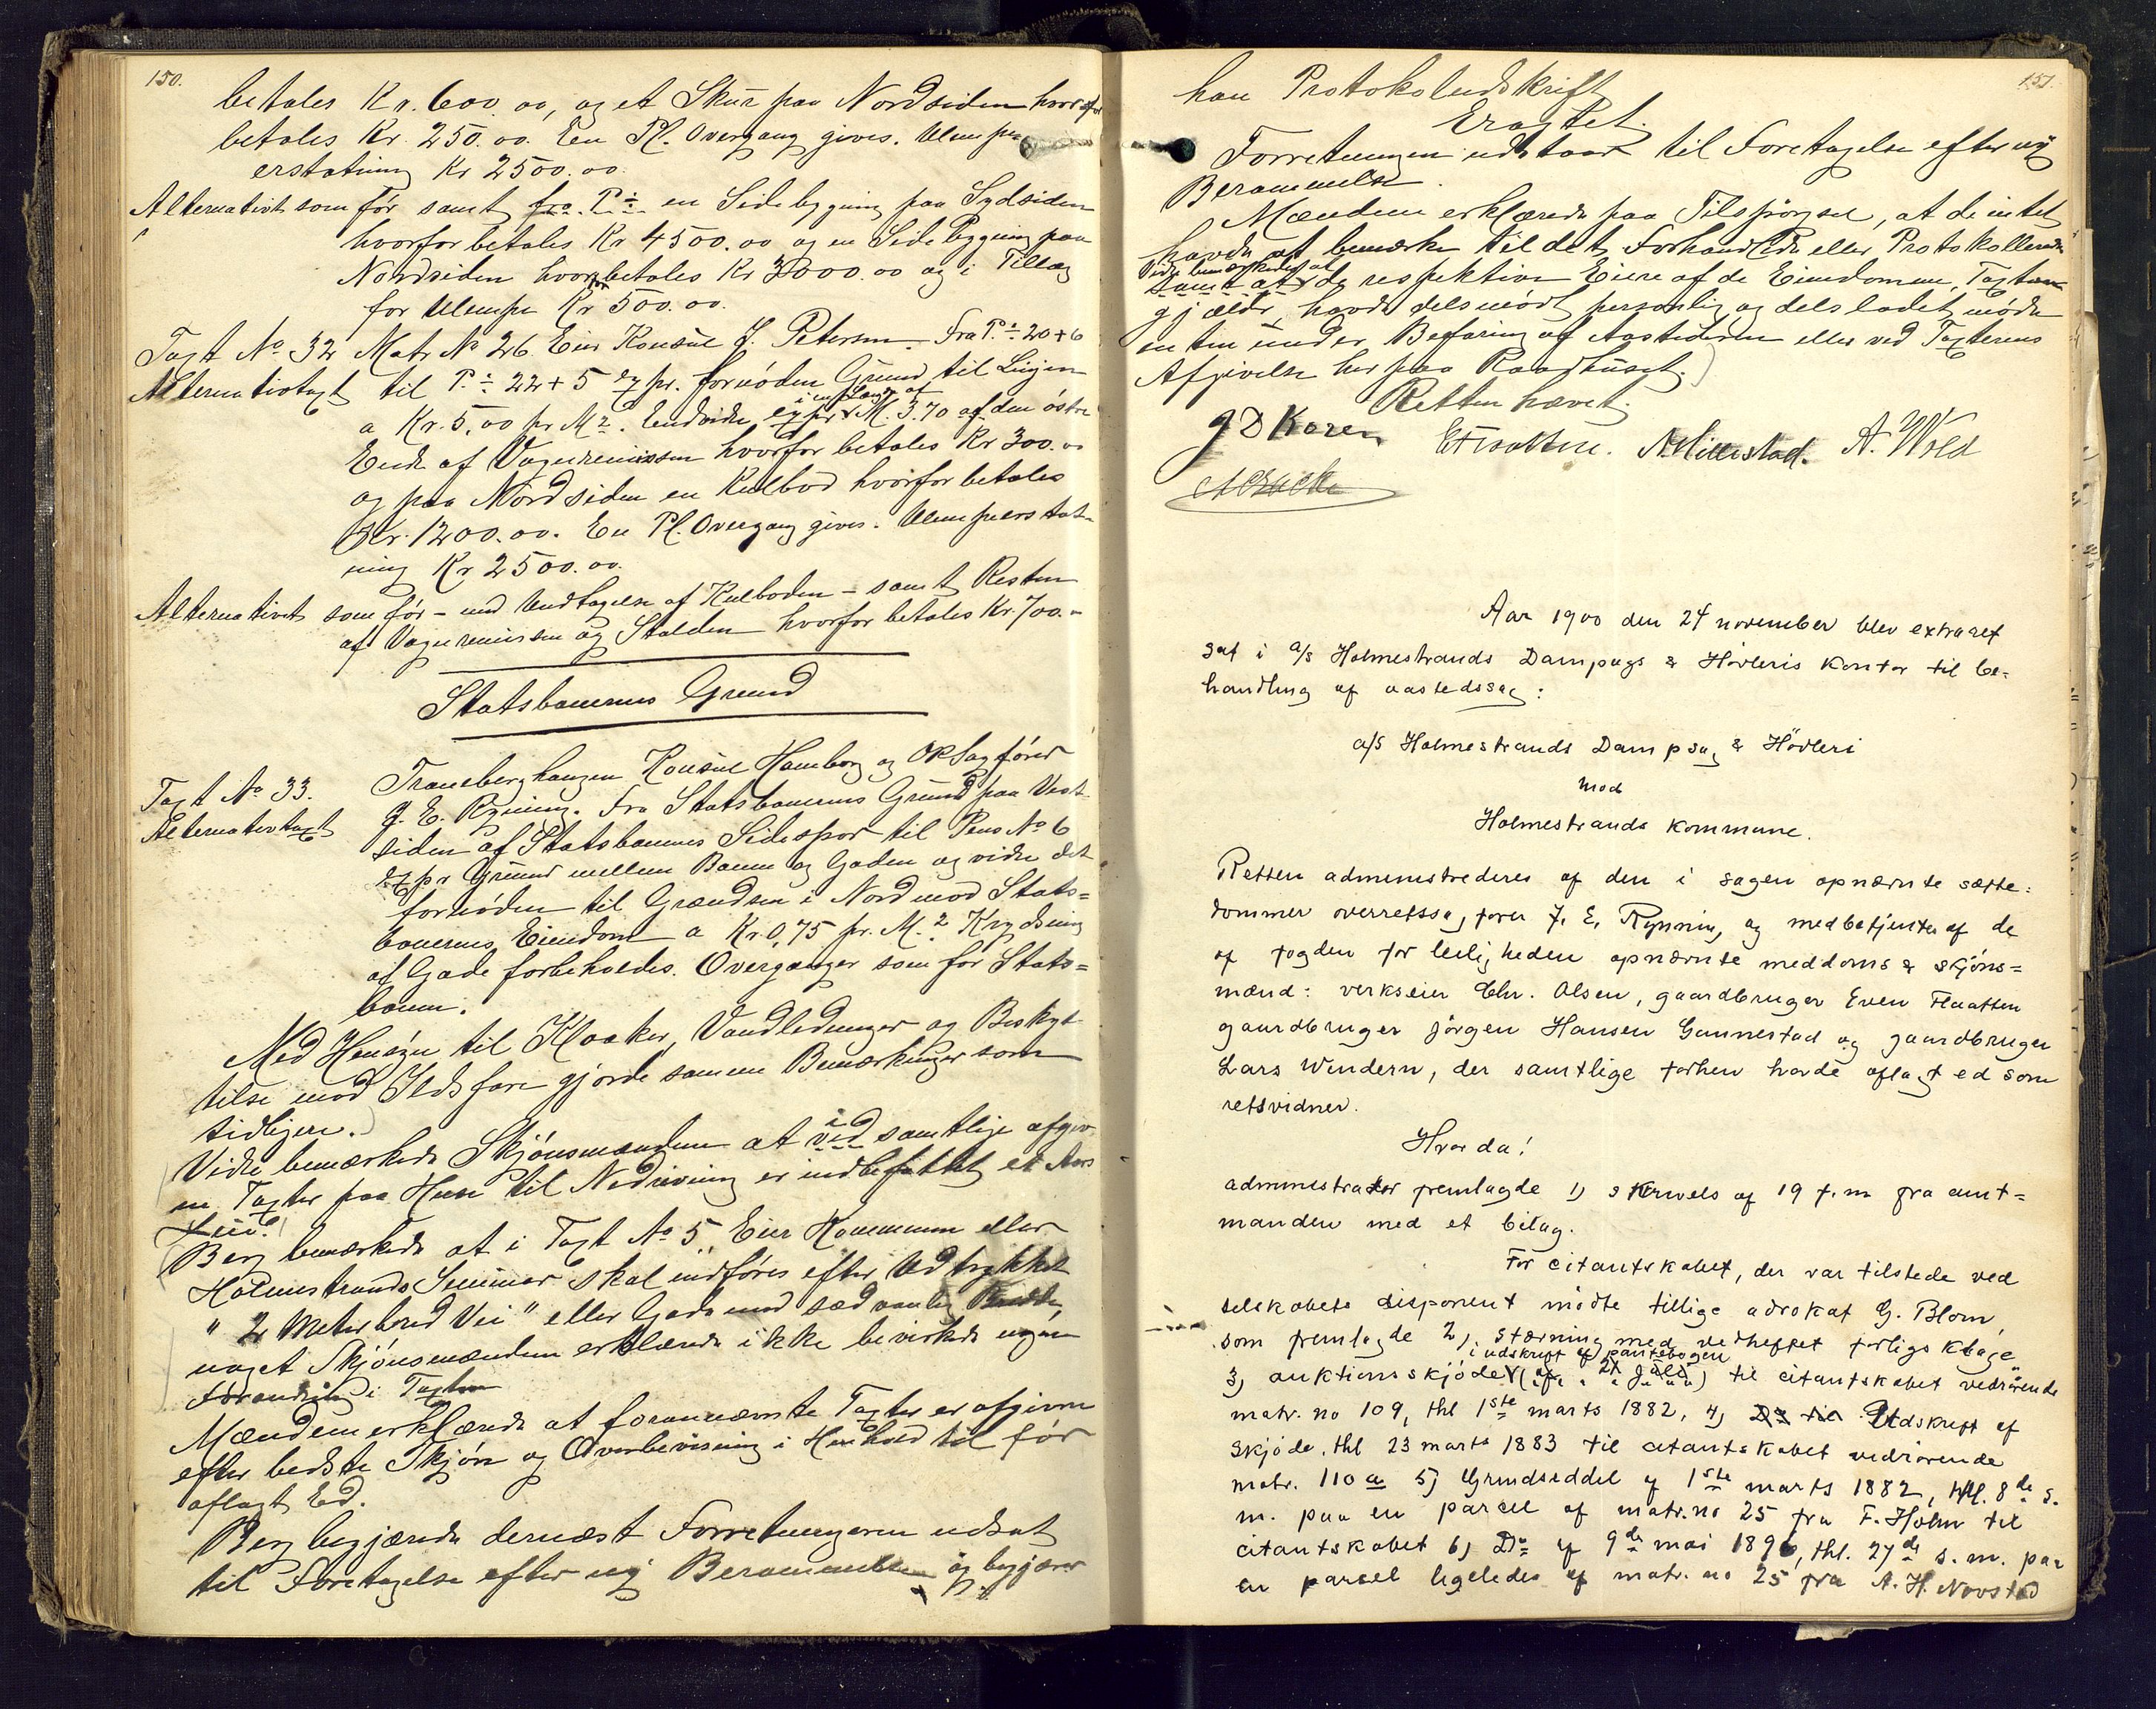 150.
betales Kr. 600.00, og et Skur paa Nordsiden hvorfor
betales Kr. 250.00. En Pl. Overgang gives. Ulempe
erstatning Kr 2500.00.
Alternativt som før samt fra P. en Sidebygning paa Sydsiden
hvorfor betales Kr 4500.00 og en Sidebygning paa
Nordsiden hvorfor betales Kr 3000.00 og i Tillæg
for Ulempe Kr 500.00.
Taxt No 32 Matr No 26. Eier Konsul J. Petersen Fra P. 20+6
Alternativtaxt til P. 22+5 expr. fornøden Grund til Linjen
a Kr. 5,00 pr M2. Endvidere expr i en Længde af M. 3.70 af den østre
Ende af Vognremissen hvorfor betales Kr 300.00
og paa Nordsiden en Kulbod hvorfor betales
Kr. 1200.00. En Pl. Overgang gives. Ulempeerstat-
ning Kr 2500.00.
Alternativt som før – med Undtagelse af Kulboden – samt Resten
af Vognremissen og Stalden hvorfor betales Kr. 700.-
Statsbanernes Grund
Taxt No 33. Traneberghaugen Konsul Hamborg og ORSagfører
Alternativtaxt J. E. Rynning. Fra Statsbanernes Grund paa Vest-
siden af Statsbanens Sidespor til Pens No 6
expr Grund mellem Banen og Gaden og videre det
fornødne til Grændsen i Nord mod Stats=
banernes Eiendom a Kr. 0,75 pr. M.2 Krydsning
af Gade forbeholdes. Overgange som for Stats=
banen.
Med Hensyn til Kloaker, Vandledninger og Beskyt-
telse mod Ildsfare gjorde samme Bemærkninger som
tidligere.
Videre bemærkede Skjønsmændene at i ved samtlige afgiv-
ne Taxter paa Huse til Nedrivning er indbefattet et Aars
Leie.
Berg bemærkede at i Taxt No 5, Eier Kommunen eller
Holmestrands Seminar skal indføres efter Udtrykket
" 2 Meter bred Vei" eller Gade med sædvanlig Bredde,
noget Skjønsmændene erklærede ikke bevirkede nogen
Forandring i Taxten
Mændene erklærede at forannævnte Taxter er afgivne
efter bedste Skjøn og Overbevisning i Henhold til før
aflagt Ed.
Berg begjærede dernæst Forretningen udsat
til Foretagelse efter ny Berammelse og begjærer
151.
han Protokoludskrift
Eragtet.
Forretningen udstaar til Foretagelse efter ny
Berammelse.
Mændene erklærede paa Tilspørgsel, at de intet
havde at bemærke til det Forhandlede eller Protokollerede
Videre bemærkedes at
samt at de respektive Eiere af de Eiendomme, Taxterne
gjælder, havde dels mødt personlig og dels ladet møde
enten under Befaring af Aastederne eller ved Taxterens
Afgivelse her paa Raadhuset.
Retten hævet.
J D Koren A. Wold
Aar 1900 den 24 november blev extraret
sat i a/s Holmestrands Dampsags & Høvleris kontor til be-
handling af aastedssag:
a/s Holmestrands Dampsag & Høvleri
mod
Holmestrands kommune.
Retten administrederes af den i sagen opnævnte sætte-
dommer overretssagfører J. E. Rynning og medbetjentes af de
af fogden for leiligheden opnævnte meddoms & skjøns=
mænd: verkseier Chr. Olsen, gaardbruger Even Flaatten
gaardbruger Jørgen Hansen Gunnestad og gaardbruger
Lars Windern, der samtlige forhen havde aflagt ed som
retsvidner.
Hvorda!
administrator fremlagde 1) skrivels af 19 f.m fra amt=
manden med et bilag.
For citantskabet, der var tilstede ved
selskabets disponent mødte tillige advokat G. Blom,
som fremlagde 2) stævning med vedheftet forligsklage
i udskrift af pantebogen
3) auktionsskjøde (af 21 Juli) til citantskabet vedrørende
matr. no 109, thl 1ste marts 1882, 4) Do til Udskrift af
skjøde, thl 23 marts 1883 til citantskabet vedrørende
matr. 110 a 5) Grundseddel af 1ste marts 1882, thl. 8de s.
m. paa en parcel af matr. no 25 fra F. Holm til
citantskabet 6) Do af 9de mai 1896, thl. 27de s.m. paa
en parcel ligeledes af matr. no 25 fra A. H. Navstad